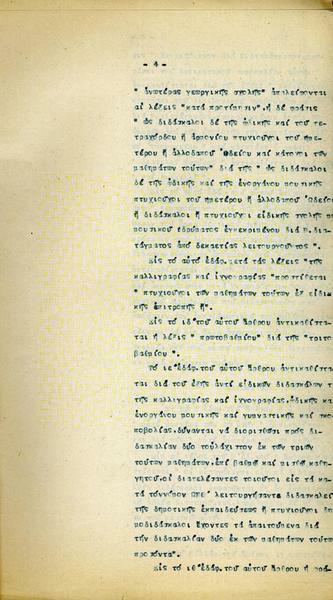 - 4 -
" ἀνωτέρας γεωργικῆς σχολῆς" ἀπαλείφονται
αἱ λέξεις "κατά προτίμησιν".ἡ δέ φράσις
" ὡς διδάσκαλοι δέ τῆς ᾠδικῆς καί τοῦ τε-
τραχόρδου ἤ ἁρμονίου πτυχιοῦχοι τοῦ ἡμε-
τέρου ἤ ἀλλοδαποῦ Ὠδείου καί κάτοχοι τῶν
μαθημάτων τούτων" διά τῆς " ὡς διδάσκαλοι
δέ τῆς ᾠδικῆς καί τῆς ἐνοργάνου μουσικῆς
πτυχιοῦχοι τοῦ ἡμετέρου ἤ ἀλλοδαποῦ Ὠδείου
ἤ διδάσκαλοι ἤ πτυχιοῦχοι εἰδικῆς σχολῆς
μουσικοῦ ἱδρύματος ἐγκεκριμένου διά Β.δια-
τάγματος ἀπό δεκαετίας λειτουργοῦντος ".
Εἰς τό αὐτό ἐδάφ.μετά τάς λέξεις "τῆς
καλλιγραφίας καί ἰχνογραφίας "προστίθεται
" πτυχιοῦχοι τῶν μαθημάτων τούτων ἐξ εἰδι-
κῆς ἐπιτροπῆς ἤ".
Εἰς τό ιδ' τοῦ αὐτοῦ ἄρθρου ἀντικαθίστα-
ται ἡ λέξις " πρωτοβαθμίου" διά τῆς "τριτο
βαθμίου ".
Τό ιε' ἐδάφ.τοῦ αὐτοῦ ἄρθρου ἀντικαθίστα-
ται διά τοῦ ἑξῆς ἀντί εἰδικῶν διδασκάλων τ
τῆς καλλιγραφίας καί ἰχνογραφίας.ᾠδικῆς κα
ἐνοργάνου μουσικῆς καί γυμναστικῆς καί σκο-
ποβολίας.δύνανται νά διορισθῶσι πρός δι-
δασκαλίαν δύο τοὐλάχιστον ἐκ τῶν τριῶν
τούτων μαθημάτων.ἐπί βαθμῷ καί μισθῷ καθη-
γητοῦ.οἱ διατελέσαντες τοιοῦτοι εἰς τά κα-
τά τόν νόμον λειτουργήσαντα διδασκαλεῖ
τῆς δημοτικῆς ἐκπαιδεύσεως ἤ πτυχιοῦχοι δη
μοδιδάσκαλοι ἔχοντες τά ἀπαιτούμενα διά
τήν διδασκαλίαν δύο ἐκ τῶν μαθημάτων τούτων
προσόντα".
Εἰς τό ιθ' ἐδάφ.τοῦ αὐτοῦ ἄρθρου ἡ φρά-